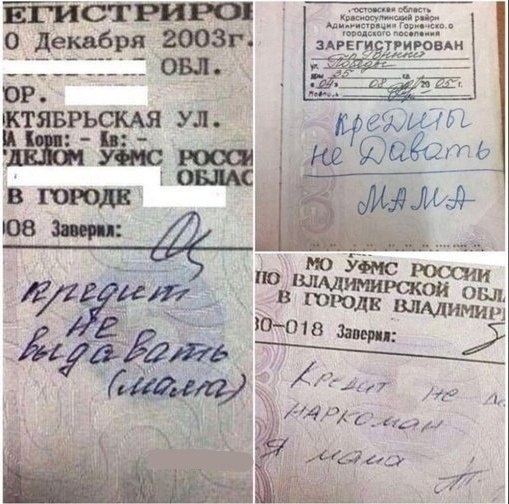 ЕГИСТРИРОВ
0 Декабря 2003г.
ОБЛ.
ОР.
КТЯБРЬСКАЯ УЛ.
ВА Корп: - Кв: -
ДЕЛОМ УФМС РОССИ
ОБЛАС
В ГОРОДЕ
008 Заверил:
кредит
не
выдавать
(мама)
Ростовская область
Красносулинский район
Администрация Горненского
городского поселения
ЗАРЕГИСТРИРОВАН
ул. Победы
дом 35 кв.
04 08 2005 г.
Подпись
кредиты
не давать
МАМА
МО УФМС РОССИИ
ПО ВЛАДИМИРСКОЙ ОБЛ
В ГОРОДЕ ВЛАДИМИР
30-018 Заверил:
Кредит не
наркоман
Я мама